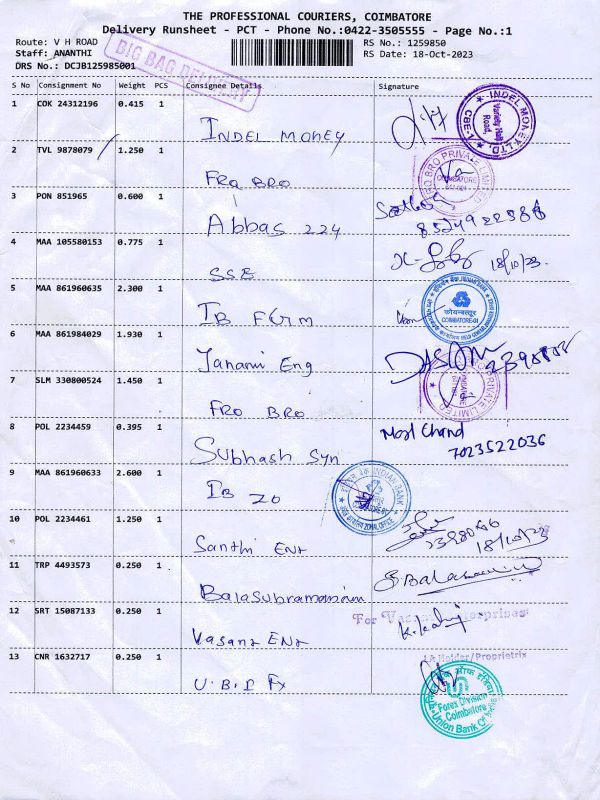 THE PROFESSIONAL COURIERS, COIMBATORE
Delivery Runsheet - PCT - Phone No.:0422-3505555 - Page No.:1
Route: V H ROAD
RS No.: 1259850
Staff: ANANTHI
RS Date: 18-Oct-2023
DRS No.: DCJB125985001
BIG BAG DELIVERY
S No Consignment No Weight PCS Consignee Details Signature
1 COK 24312196 0.415 1 INDEL MONEY
INDEL MONEY LTD. Variety Hall Road, CBE-1
2 TVL 9878079 1.250 1 FRO BRO
RO BRO PRIVATE LIMITED COIMBATORE
3 PON 851965 0.600 1 Abbas 224
4 MAA 105580153 0.775 1 SSE 18/10/23.
5 MAA 861960635 2.300 1 IB FGM
कोयम्बत्तूर COIMBATORE-01
6 MAA 861984029 1.930 1 Janani Eng
7 SLM 330800524 1.450 1 FRO BRO
PRIVATE LIMITED
8 POL 2234459 0.395 1 Subhash Syn Chand 7023522036
9 MAA 861960633 2.600 1 IB ZO
INDIAN BANK ZONAL OFFICE
10 POL 2234461 1.250 1 Santhi Ent 18/10/23
11 TRP 4493573 0.250 1 Balasubramaniam
12 SRT 15087133 0.250 1 Vasant Ent
For Enterprises
Holder/Proprietrix
13 CNR 1632717 0.250 1 U.B.I Fx
Forex Division Coimbatore Union Bank Of India